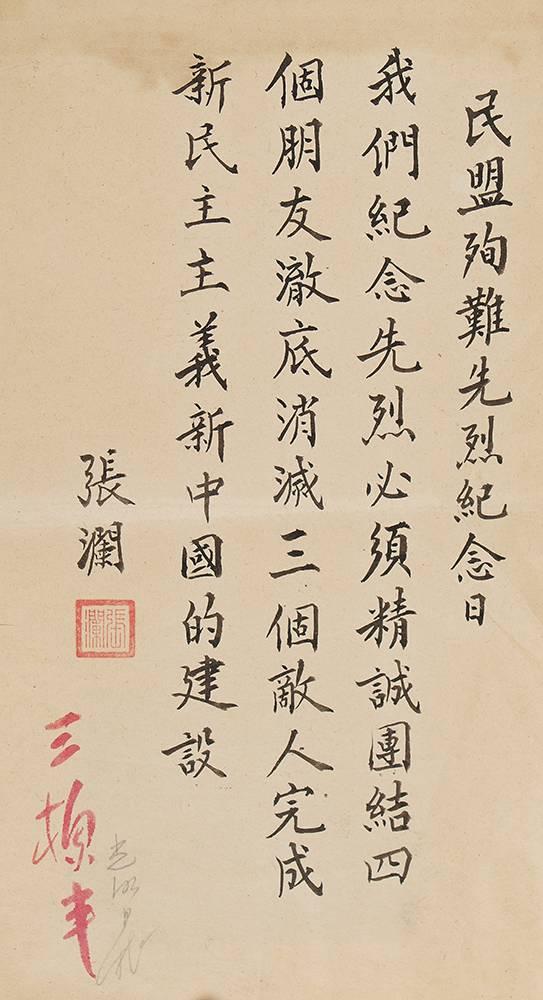 民盟殉難先烈紀念日
我們紀念先烈必須精誠團結四
個朋友澈底消滅三個敵人完成
新民主主義新中國的建設
張瀾
張瀾
三